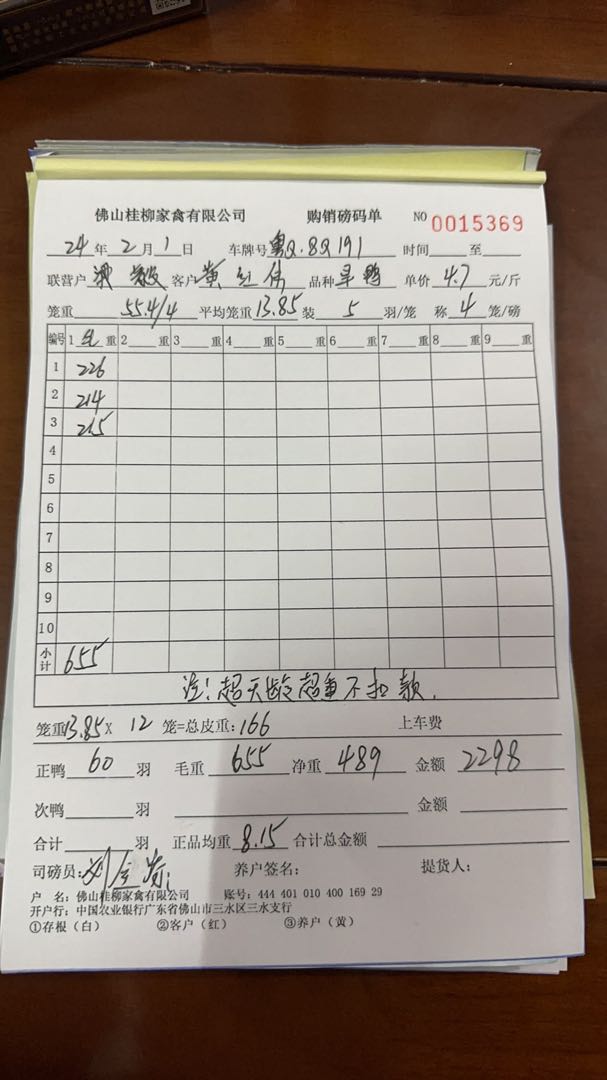 佛山桂柳家禽有限公司 购销磅码单 NO 0015369
24 年 2 月 1 日 车牌号 粤Q·8Q191 时间 至
联营户 客户 黄 伟 品种 鸭 单价 4.7 元/斤
笼重 55.4/4 平均笼重 13.85 装 5 羽/笼 称 4 笼/磅
编号 1 重 2 重 3 重 4 重 5 重 6 重 7 重 8 重 9 重
1 226
2 214
3 215
4
5
6
7
8
9
10
小计 655
注:超天龄超重不扣款.
笼重13.85 X 12 笼=总皮重:166 上车费
正鸭 60 羽 毛重 655 净重 489 金额 2298
次鸭 羽 金额
合计 羽 正品均重 8.15 合计总金额
司磅员: 刘 养户签名: 提货人:
户 名:佛山桂柳家禽有限公司 账号:444 401 010 400 169 29
开户行:中国农业银行广东省佛山市三水区三水支行
①存根(白) ②客户(红) ③养户(黄)